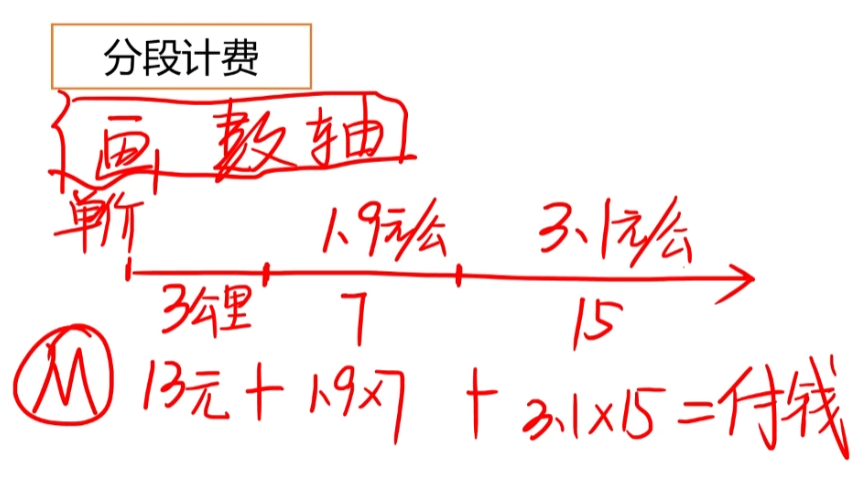 分段计费
画 数轴
单价 1.9元/公 3.1元/公
3公里 7 15
M 13元 + 1.9×7 + 3.1×15 = 付钱